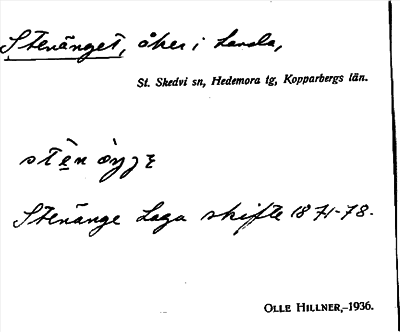 Stenänget, åker i Landa,
St. Skedvi sn, Hedemora tg, Kopparbergs län.
Stenänge Laga skifte 1871-78.
OLLE HILLNER,–1936.